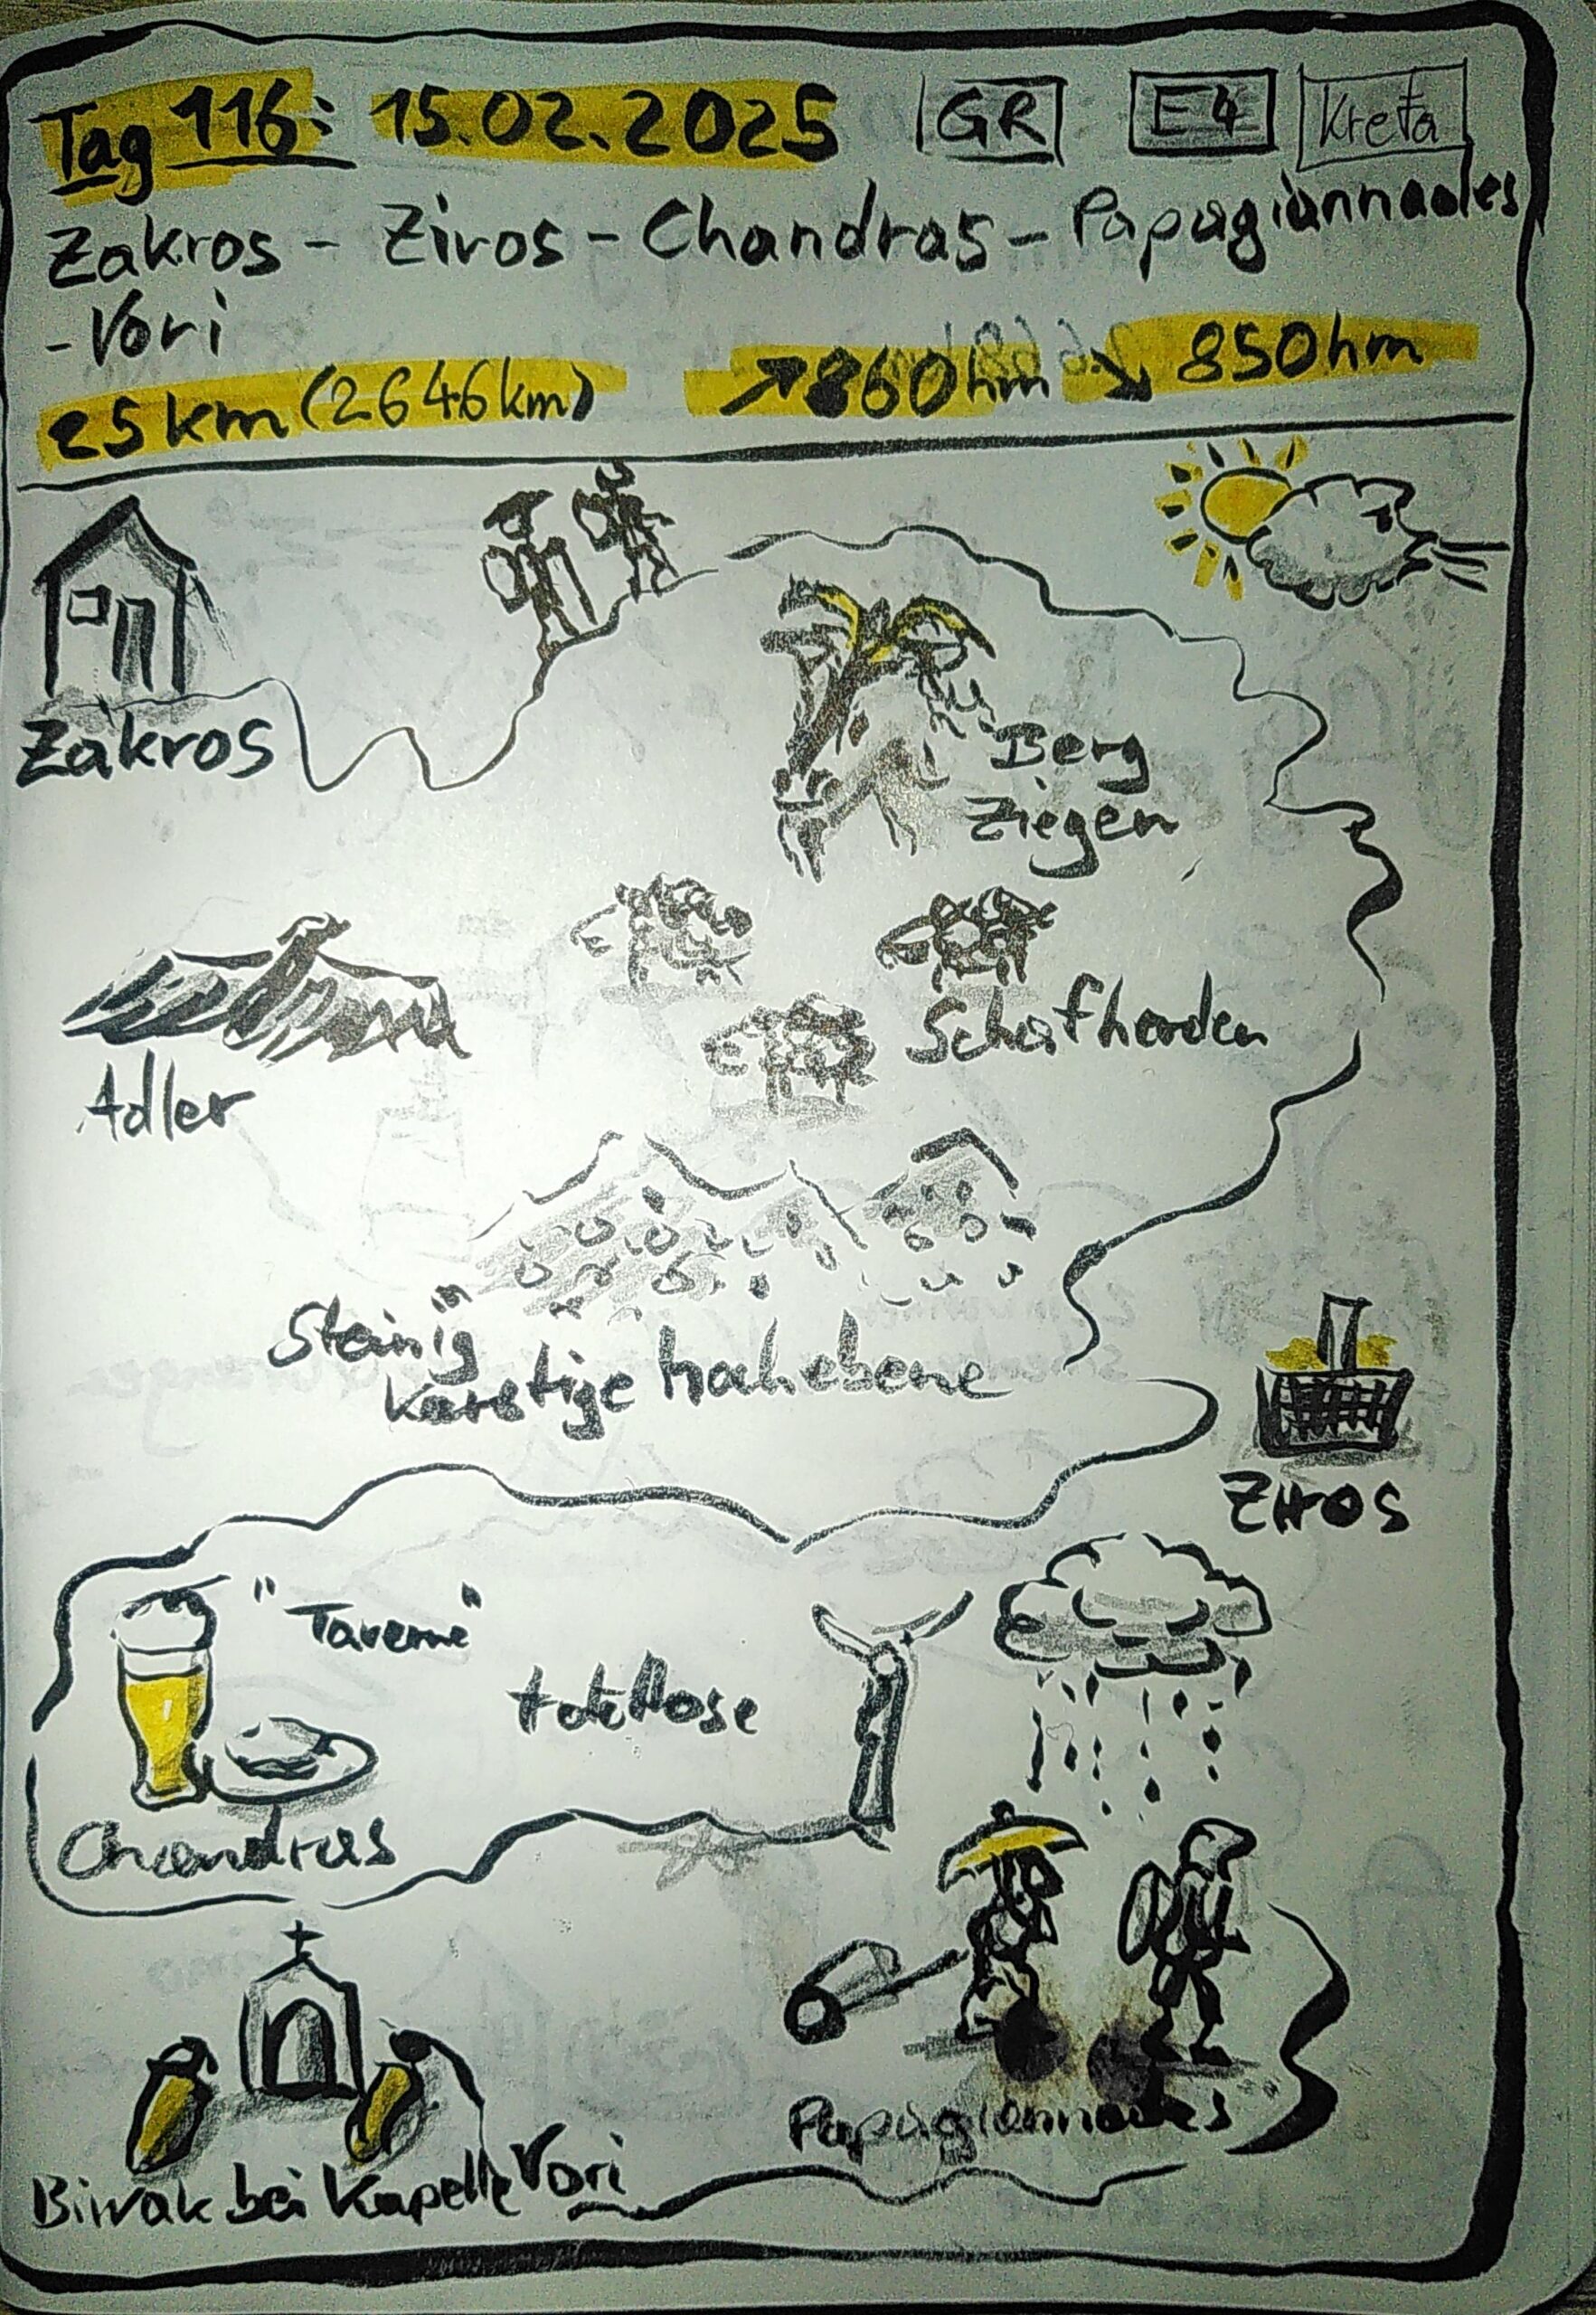 Tag 116: 15.02.2025 GR E4 Kreta
Zakros - Ziros - Chandras - Papagiannades
- Vori
25 km (2646 km) ↗ 860 hm ↘ 850 hm
Zakros
Berg
Ziegen
Schafherden
Adler
Steinig
karstige hochebene
Ziros
"Taverne"
Chandras
Papagiannades
Biwak bei Kapelle Vori